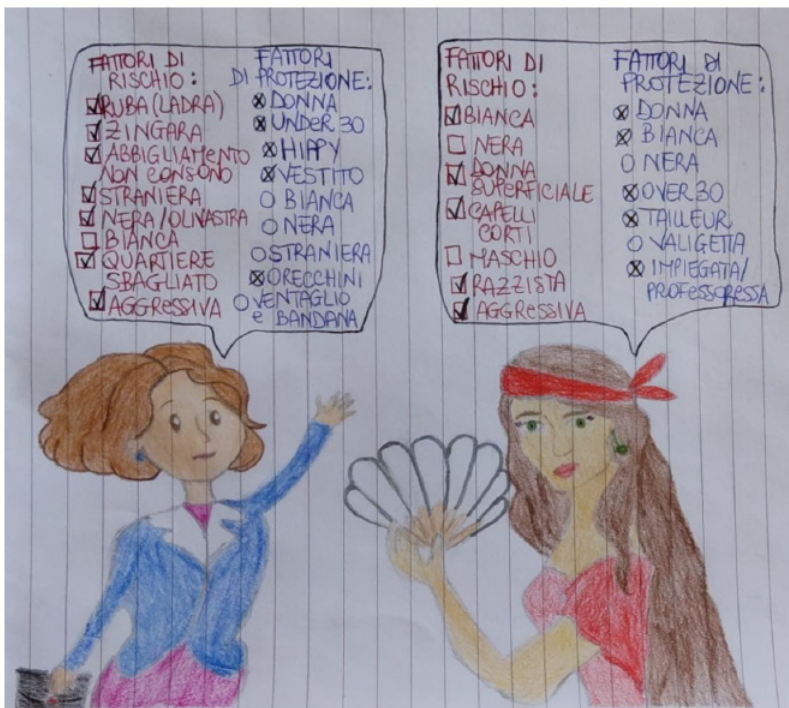 FATTORI DI
RISCHIO:
RUBA (LADRA)
ZINGARA
ABBIGLIAMENTO
NON CONSONO
STRANIERA
NERA/OLIVASTRA
BIANCA
QUARTIERE
SBAGLIATO
AGGRESSIVA
FATTORI
DI PROTEZIONE:
DONNA
UNDER 30
HIPPY
VESTITO
BIANCA
NERA
STRANIERA
ORECCHINI
VENTAGLIO
e BANDANA
FATTORI DI
RISCHIO:
BIANCA
NERA
DONNA
SUPERFICIALE
CAPELLI
CORTI
MASCHIO
RAZZISTA
AGGRESSIVA
FATTORI DI
PROTEZIONE:
DONNA
BIANCA
NERA
OVER 30
TAILLEUR
VALIGETTA
IMPIEGATA/
PROFESSORESSA